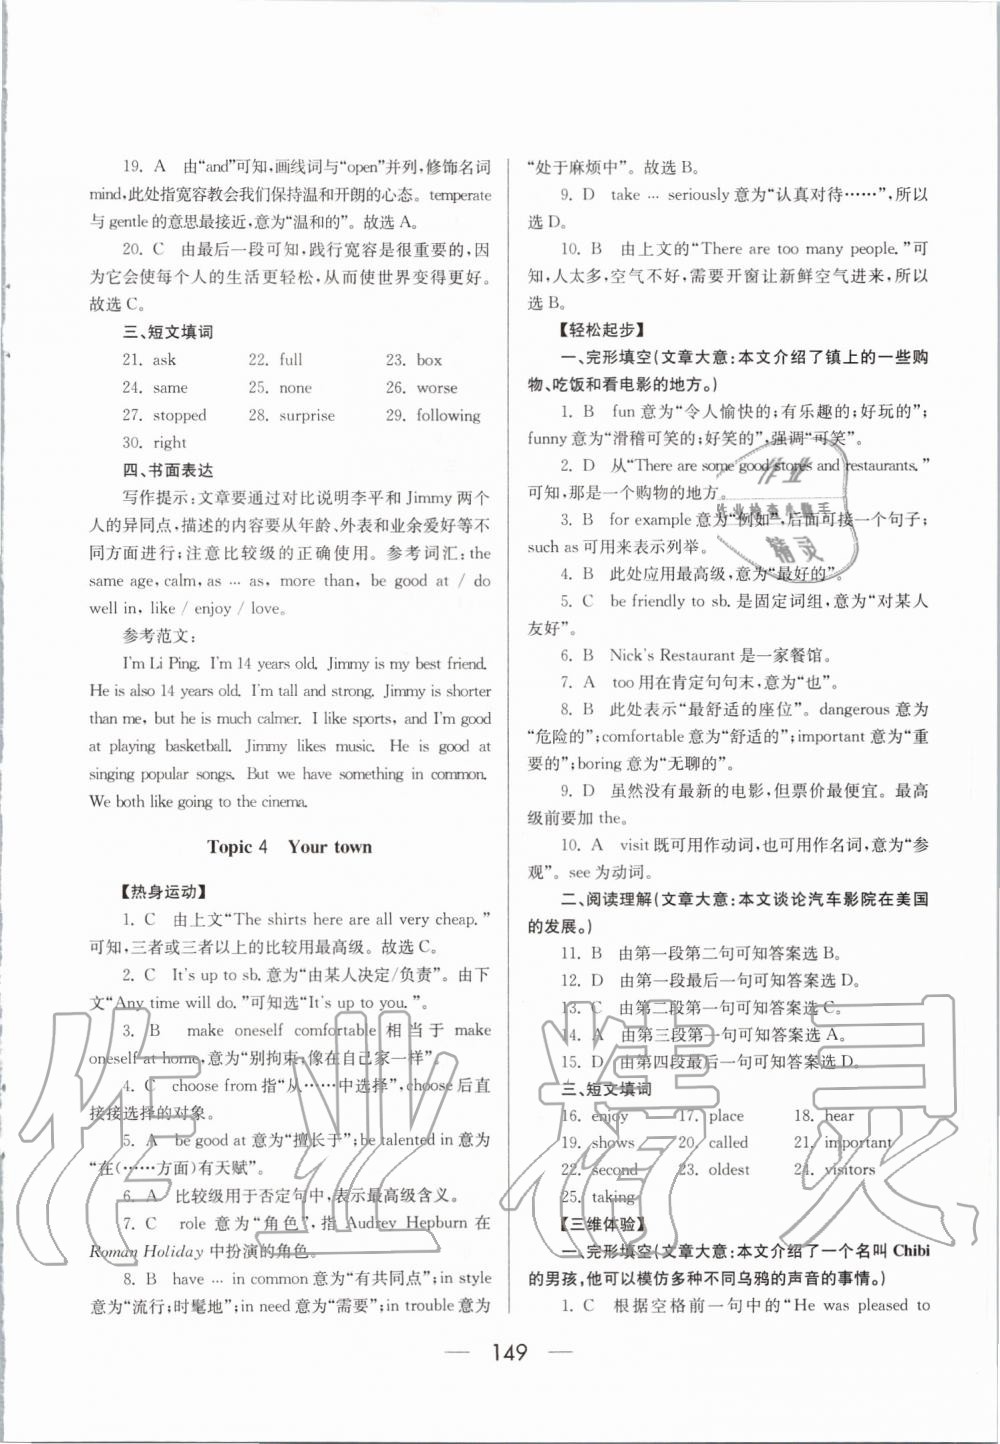 19. A 由“and”可知,画线词与“open”并列,修饰名词
mind,此处指宽容教会我们保持温和和开朗的心态。temperate
与gentle的意思最接近,意为“温和的”。故选A。
20. C 由最后一段可知,践行宽容是很重要的,因
为它会使每个人的生活更轻松,从而使世界变得更好。
故选C。
三、短文填词
21. ask 22. full 23. box
24. same 25. none 26. worse
27. stopped 28. surprise 29. following
30. right
四、书面表达
写作提示:文章要通过对比说明李平和Jimmy两个
人的异同点,描述的内容要从年龄、外表和业余爱好等不
同方面进行;注意比较级的正确使用。参考词汇:the
same age, calm, as … as, more than, be good at / do
well in, like / enjoy / love。
参考范文:
I'm Li Ping. I'm 14 years old. Jimmy is my best friend.
He is also 14 years old. I'm tall and strong. Jimmy is shorter
than me, but he is much calmer. I like sports, and I'm good
at playing basketball. Jimmy likes music. He is good at
singing popular songs. But we have something in common.
We both like going to the cinema.
Topic 4 Your town
【热身运动】
1. C 由上文“The shirts here are all very cheap.”
可知,三者或三者以上的比较用最高级。故选C。
2. C It's up to sb.意为“由某人决定/负责”。由下
文“Any time will do.”可知选“It's up to you.”。
3. B make oneself comfortable 相当于 make
oneself at home,意为“别拘束;像在自己家一样”。
4. C choose from指“从……中选择”,choose后直
接接选择的对象。
5. A be good at意为“擅长于”;be talented in意为
“在(……方面)有天赋”。
6. A 比较级用于否定句中,表示最高级含义。
7. C role 意为“角色”,指 Audrey Hepburn 在
Roman Holiday 中扮演的角色。
8. B have … in common意为“有共同点”;in style
意为“流行;时髦地”;in need意为“需要”;in trouble意为
“处于麻烦中”。故选B。
9. D take … seriously意为“认真对待……”,所以
选D。
10. B 由上文的“There are too many people.”可
知,人太多,空气不好,需要开窗让新鲜空气进来,所以
选B。
【轻松起步】
一、完形填空(文章大意:本文介绍了镇上的一些购
物、吃饭和看电影的地方。)
1. B fun意为“令人愉快的;有乐趣的;好玩的”;
funny意为“滑稽可笑的;好笑的”,强调“可笑”。
2. D 从“There are some good stores and restaurants.”
可知,那是一个购物的地方。
3. B for example意为“例如”,后面可接一个句子;
such as可用来表示列举。
4. B 此处应用最高级,意为“最好的”。
5. C be friendly to sb.是固定词组,意为“对某人
友好”。
6. B Nick's Restaurant是一家餐馆。
7. A too用在肯定句句末,意为“也”。
8. B 此处表示“最舒适的座位”。dangerous意为
“危险的”;comfortable意为“舒适的”;important意为“重
要的”;boring意为“无聊的”。
9. D 虽然没有最新的电影,但票价最便宜。最高
级前要加the。
10. A visit既可用作动词,也可用作名词,意为“参
观”。see为动词。
二、阅读理解(文章大意:本文谈论汽车影院在美国
的发展。)
11. B 由第一段第二句可知答案选B。
12. D 由第一段最后一句可知答案选D。
13. C 由第二段第一句可知答案选C。
14. A 由第三段第一句可知答案选A。
15. D 由第四段最后一句可知答案选D。
三、短文填词
16. enjoy 17. place 18. hear
19. shows 20. called 21. important
22. second 23. oldest 24. visitors
25. taking
【三维体验】
一、完形填空(文章大意:本文介绍了一个名叫Chibi
的男孩,他可以模仿多种不同乌鸦的声音的事情。)
1. C 根据空格前一句中的“He was pleased to
149
作业精灵
作业
作业检查小助手
精灵